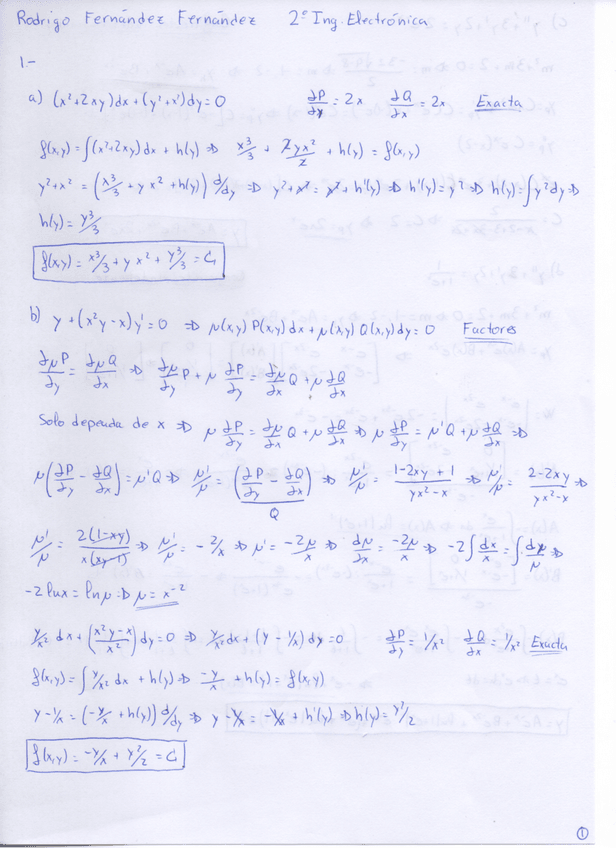 Rodrigo Fernández Fernández 2º Ing. Electrónica
1.-
a) (x²+2xy)dx + (y²+x²)dy = 0 ∂P/∂y = 2x ∂Q/∂x = 2x Exacta
f(x,y) = ∫(x²+2xy)dx + h(y) ⇒ x³/3 + 2yx²/2 + h(y) = f(x,y)
y²+x² = (x³/3 + yx² + h(y)) d/dy ⇒ y²+x² = x² + h'(y) ⇒ h'(y) = y² ⇒ h(y) = ∫y²dy ⇒
h(y) = y³/3
f(x,y) = x³/3 + yx² + y³/3 = C₁
b) y + (x²y-x)y' = 0 ⇒ μ(x,y) P(x,y)dx + μ(x,y) Q(x,y)dy = 0 Factores
∂μP/∂y = ∂μQ/∂x ⇒ ∂μ/∂y P + μ ∂P/∂y = ∂μ/∂x Q + μ ∂Q/∂x
Solo dependa de x ⇒ μ ∂P/∂y = ∂μ/∂x Q + μ ∂Q/∂x ⇒ μ ∂P/∂y = μ'Q + μ ∂Q/∂x ⇒
μ(∂P/∂y - ∂Q/∂x) = μ'Q ⇒ μ'/μ = (∂P/∂y - ∂Q/∂x)/Q ⇒ μ'/μ = (1-2xy+1)/(yx²-x) ⇒ μ'/μ = (2-2xy)/(yx²-x) ⇒
μ'/μ = 2(1-xy)/x(xy-1) ⇒ μ'/μ = -2/x ⇒ μ' = -2μ/x ⇒ dμ/dx = -2μ/x ⇒ -2∫dx/x = ∫dμ/μ ⇒
-2 lnx = lnμ ⇒ μ = x⁻²
y/x² dx + ((x²y-x)/x²)dy = 0 ⇒ y/x² dx + (y - 1/x)dy = 0 ∂P/∂y = 1/x² ∂Q/∂x = 1/x² Exacta
f(x,y) = ∫y/x² dx + h(y) ⇒ -y/x + h(y) = f(x,y)
y - 1/x = (-y/x + h(y)) d/dy ⇒ y - 1/x = -1/x + h'(y) ⇒ h(y) = y²/2
f(x,y) = -y/x + y²/2 = C₁
1